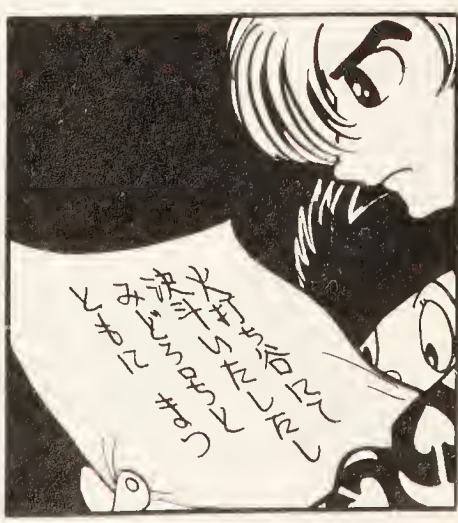 火打ち谷にて
決斗いたしたし
みどろ号と
ともに まつ